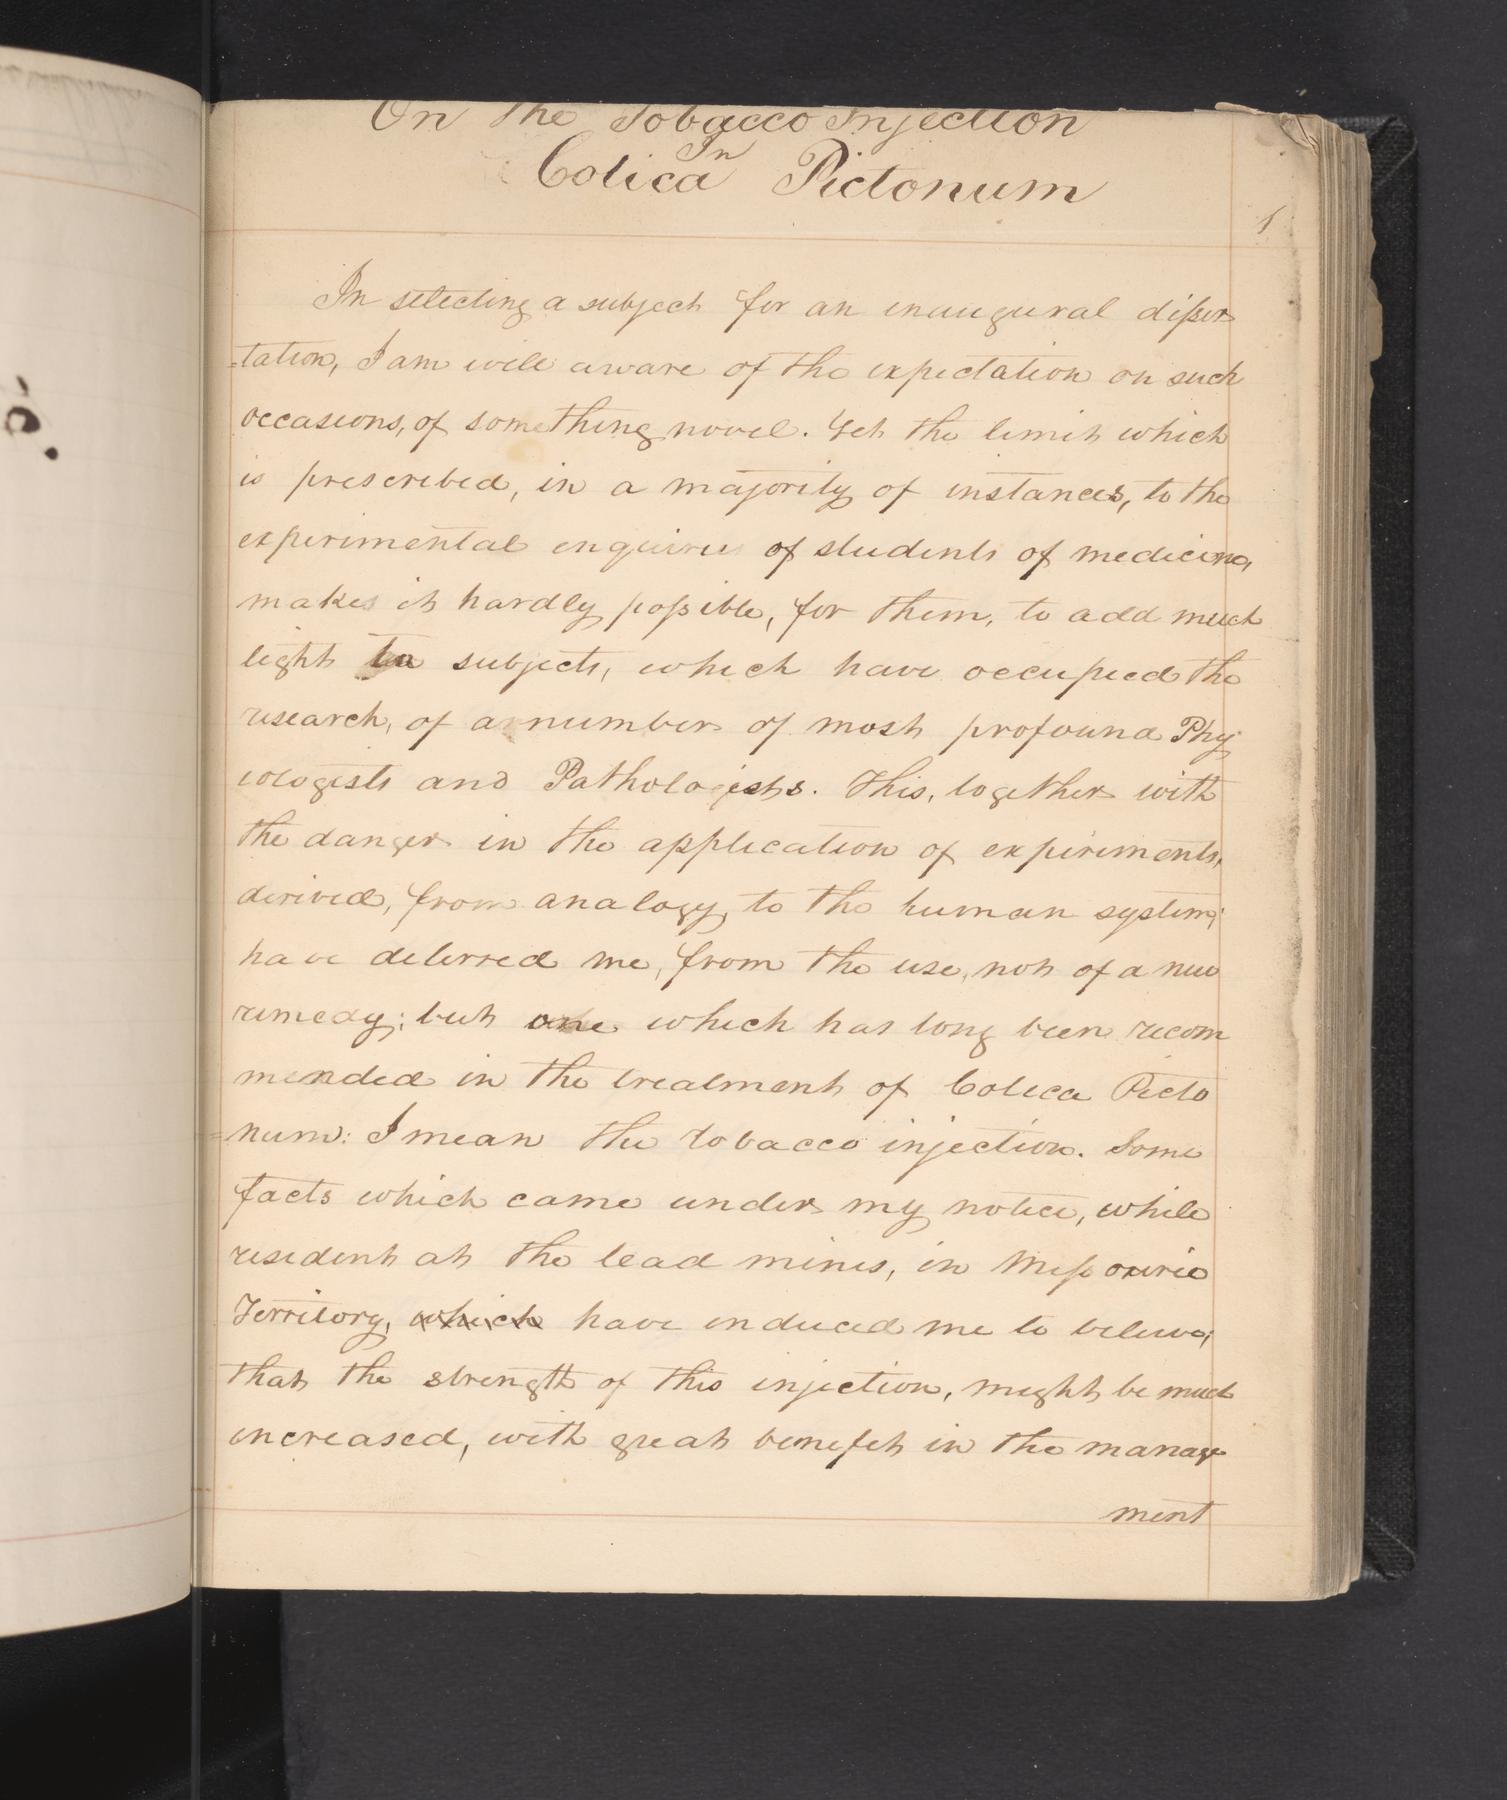 On The Tobacco Injection
In
Colica Pictonum
1
In selecting a subject for an inaugural disser
=tation, I am well aware of the expectation on such
occasions, of something novel. Yet the limit which
is prescribed, in a majority of instances, to the
experimental enquiries of students of medicine,
makes it hardly possible, for them, to add much
light to subjects, which have occupied the
research, of a number of most profound Phy
iologists and Pathologists. This, together with
the danger in the application of experiments,
derived, from analogy, to the human system;
have deterred me, from the use, not of a new
remedy; but one which has long been recom
mended in the treatment of Colica Picto
=num: I mean the tobacco injection. Some
facts which came under my notice, while
resident at the lead mines, in Missourie
Territory, which have induced me to believe,
that the strength of this injection, might be much
increased, with great benefit in the manage
ment